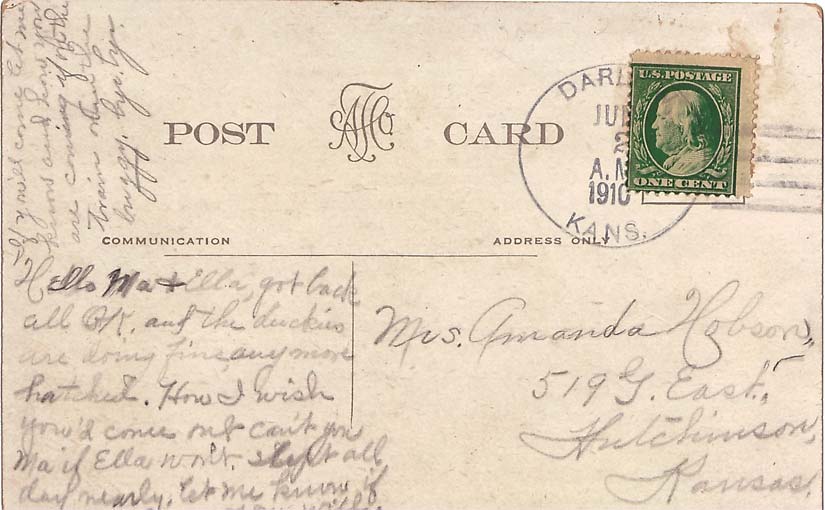 If y will come let me
know and how you
are coming if on the
train or in the
buggy. bye bye.
POST CARD
COMMUNICATION
ADDRESS ONLY
DARL
JUL
2
A.M
1910
KANS.
U.S. POSTAGE
ONE CENT
Hello Ma + Ella, got back
all O.K. and the duckies
are doing fine, any more
hatched. How I wish
you'd come out can't you
Ma if Ella won't. slept all
day nearly, let me know if
Mrs. Amanda Hobson,
519 G. East,
Hutchinson,
Kansas,